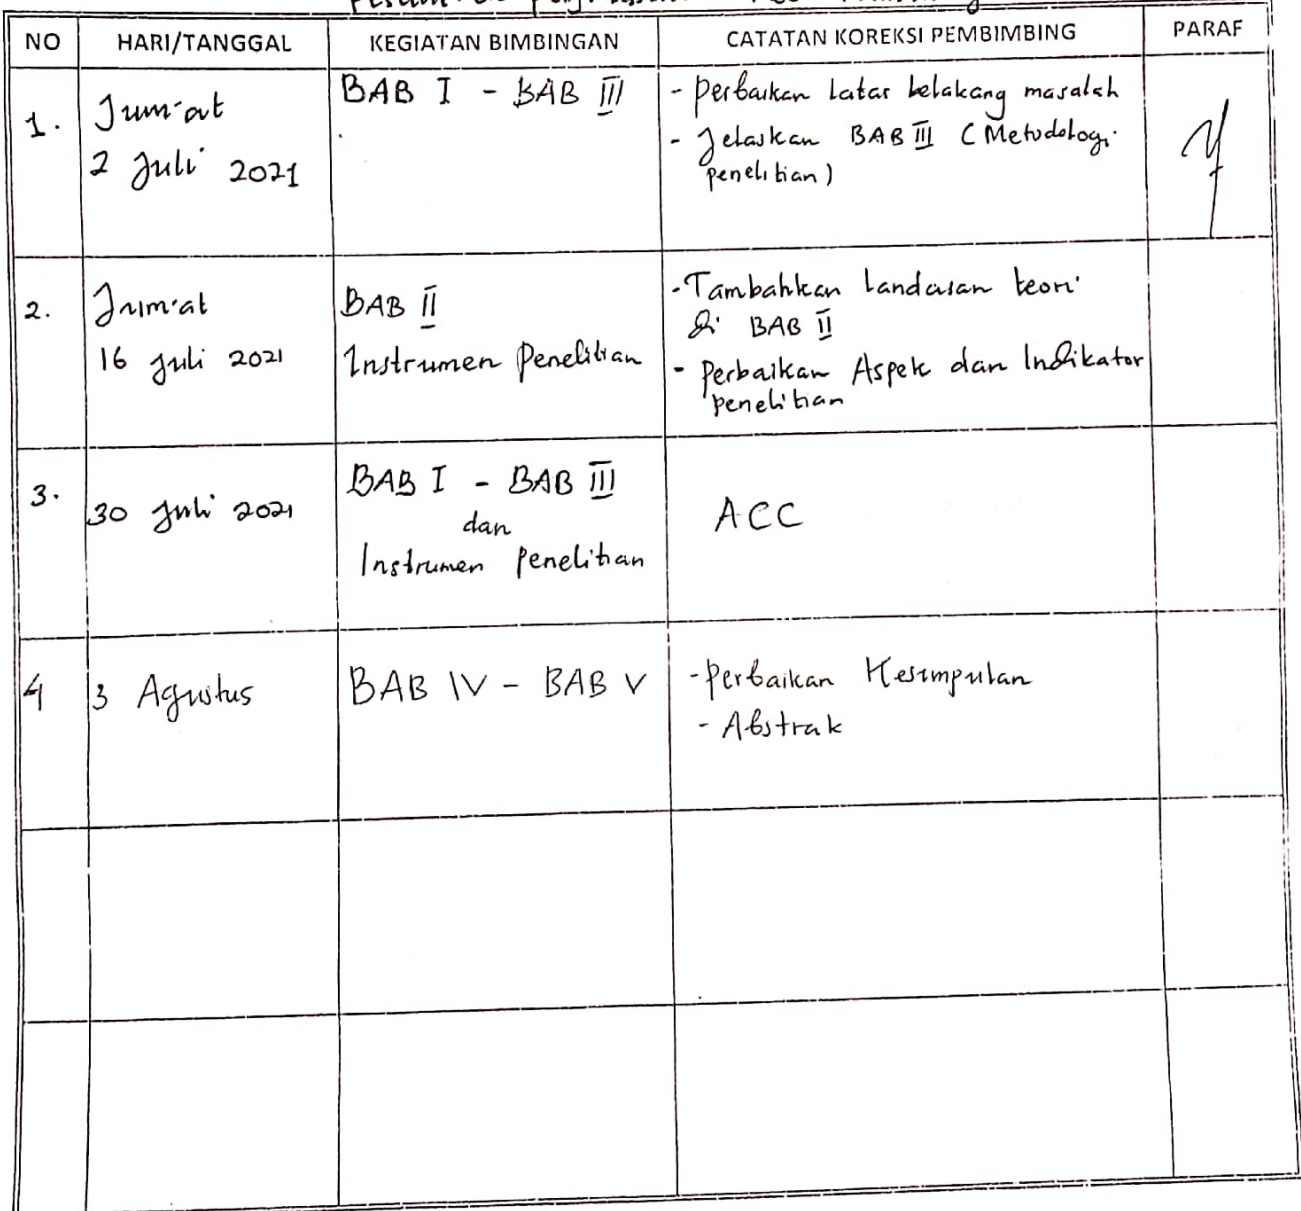 NO HARI/TANGGAL KEGIATAN BIMBINGAN CATATAN KOREKSI PEMBIMBING PARAF
1. Jum'at
2 Juli 2021
BAB I - BAB III
- Perbaikan Latar belakang masalah
- Jelaskan BAB III (Metodologi
penelitian)
2. Jum'at
16 Juli 2021
BAB II
Instrumen Penelitian
- Tambahkan Landasan teori
di BAB II
- Perbaikan Aspek dan Indikator
penelitian
3. 30 Juli 2021
BAB I - BAB III
dan
Instrumen Penelitian
ACC
4 3 Agustus
BAB IV - BAB V
- Perbaikan Kesimpulan
- Abstrak